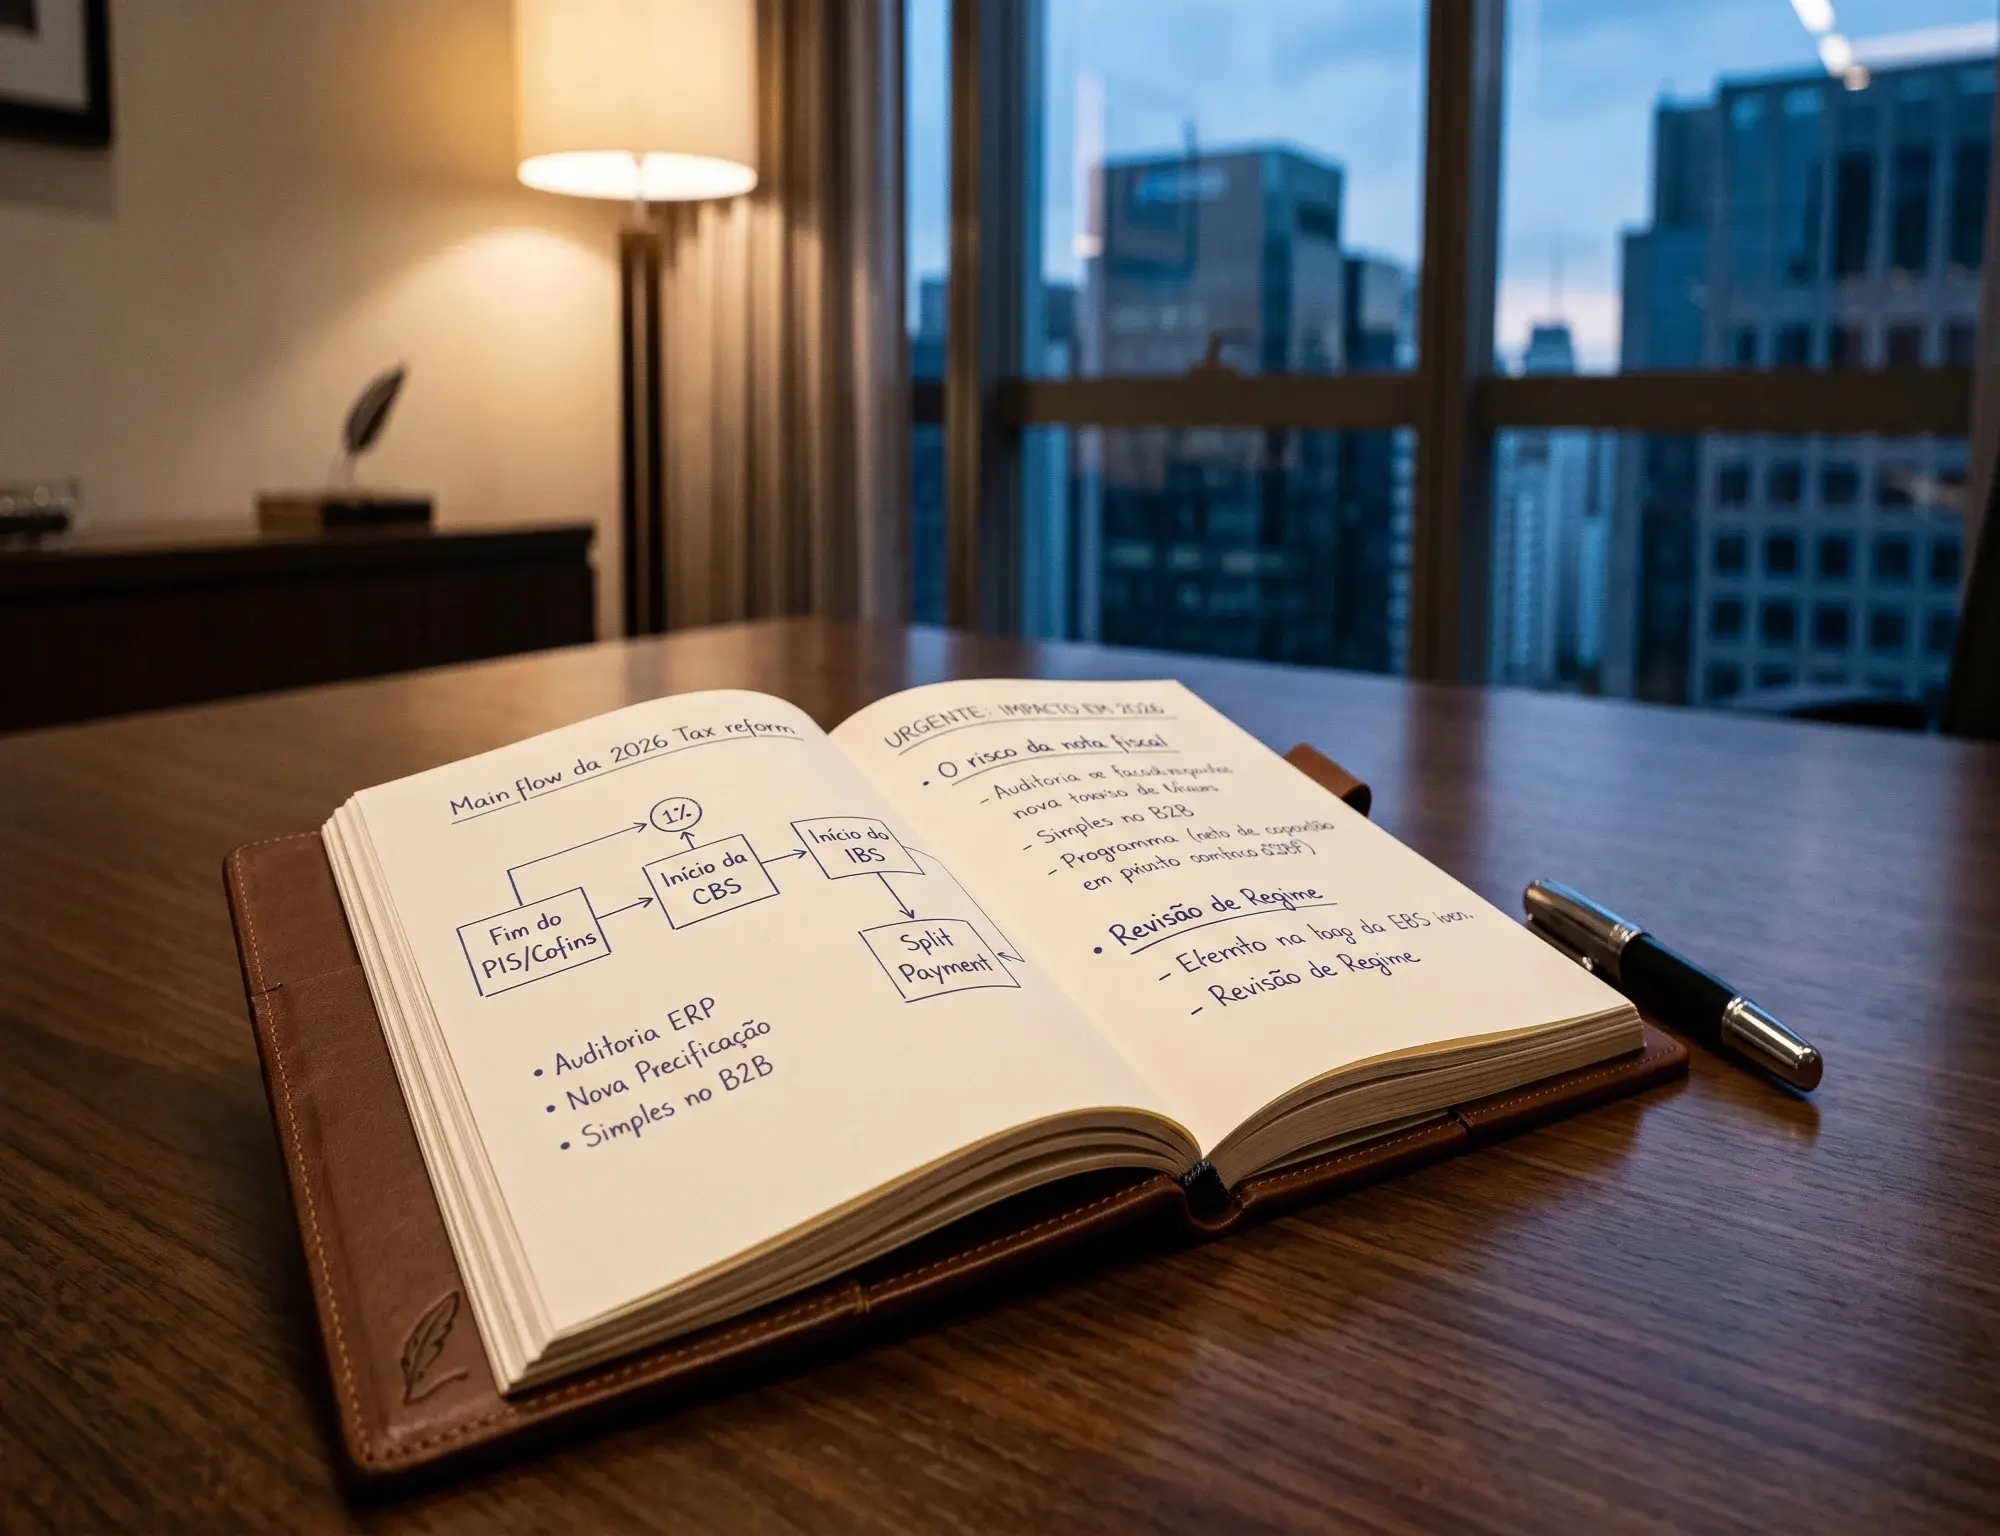 Main flow da 2026 Tax reform
1%
Fim do
PIS/Cofins
Início da
CBS
Início do
IBS
Split
Payment
• Auditoria ERP
• Nova Precificação
• Simples no B2B
URGENTE: IMPACTO EM 2026
• O risco da nota fiscal
- Auditoria
nova de
- Simples no B2B
- Programa de
em
• Revisão de Regime
- na da EBS
- Revisão de Regime